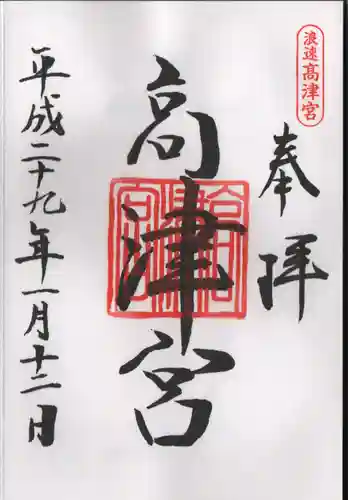 浪速高津宮
奉拝
高津宮
高津宮
平成二十九年一月十二日